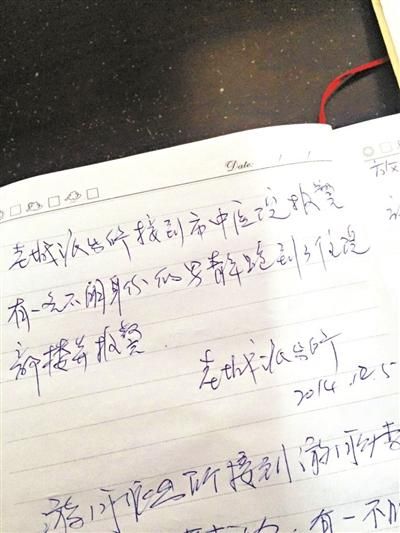 Date: / /
老城派出所接到市中医院报警
有一名不明身份的男青年跑到了住院
部楼并报警.
老城派出所
2014.12.5
游河派出所接到游河
有一不